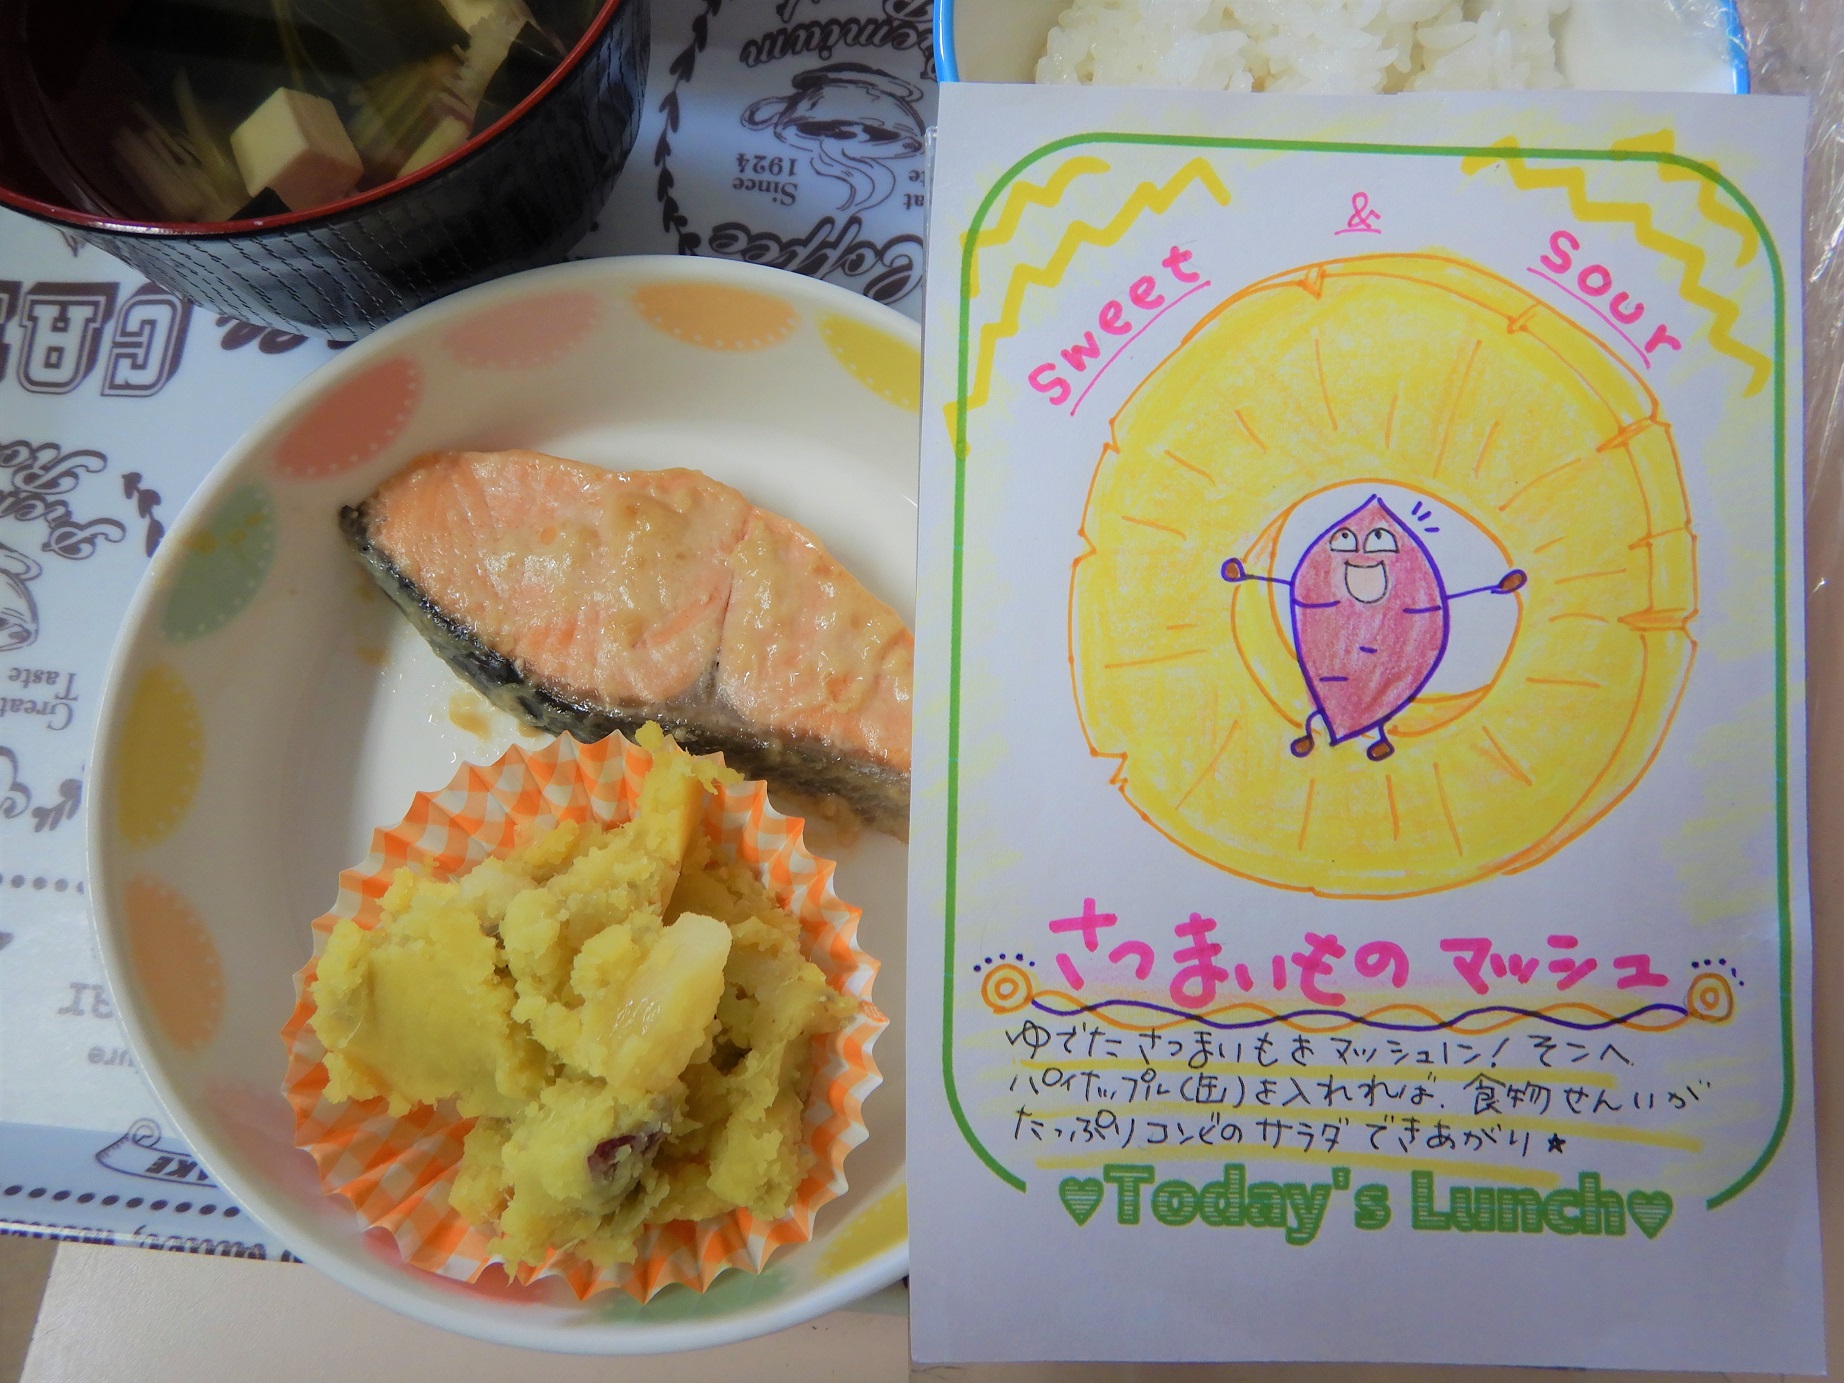 Premium
Since
1924
Coffee
Great
Taste
Sweet & Sour
さつまいものマッシュ
ゆでたさつまいもをマッシュIN！そこへ
パイナップル(缶)を入れれば、食物せんいが
たっぷりコンビのサラダできあがり★
♥Today's Lunch♥